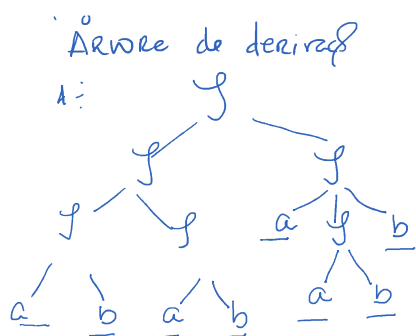 Árvore de derivaçã
1:
S
S S
S S a S b
a b a b a b